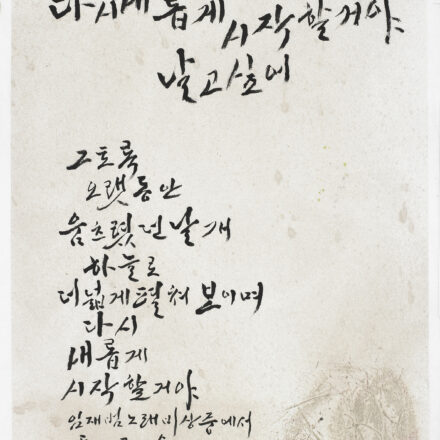 다시새롭게
시작할거야
날고싶어
그토록
오랫동안
움츠렸던 날개
하늘로
더넓게펼쳐 보이며
다시
새롭게
시작할거야
임재범노래비상중에서